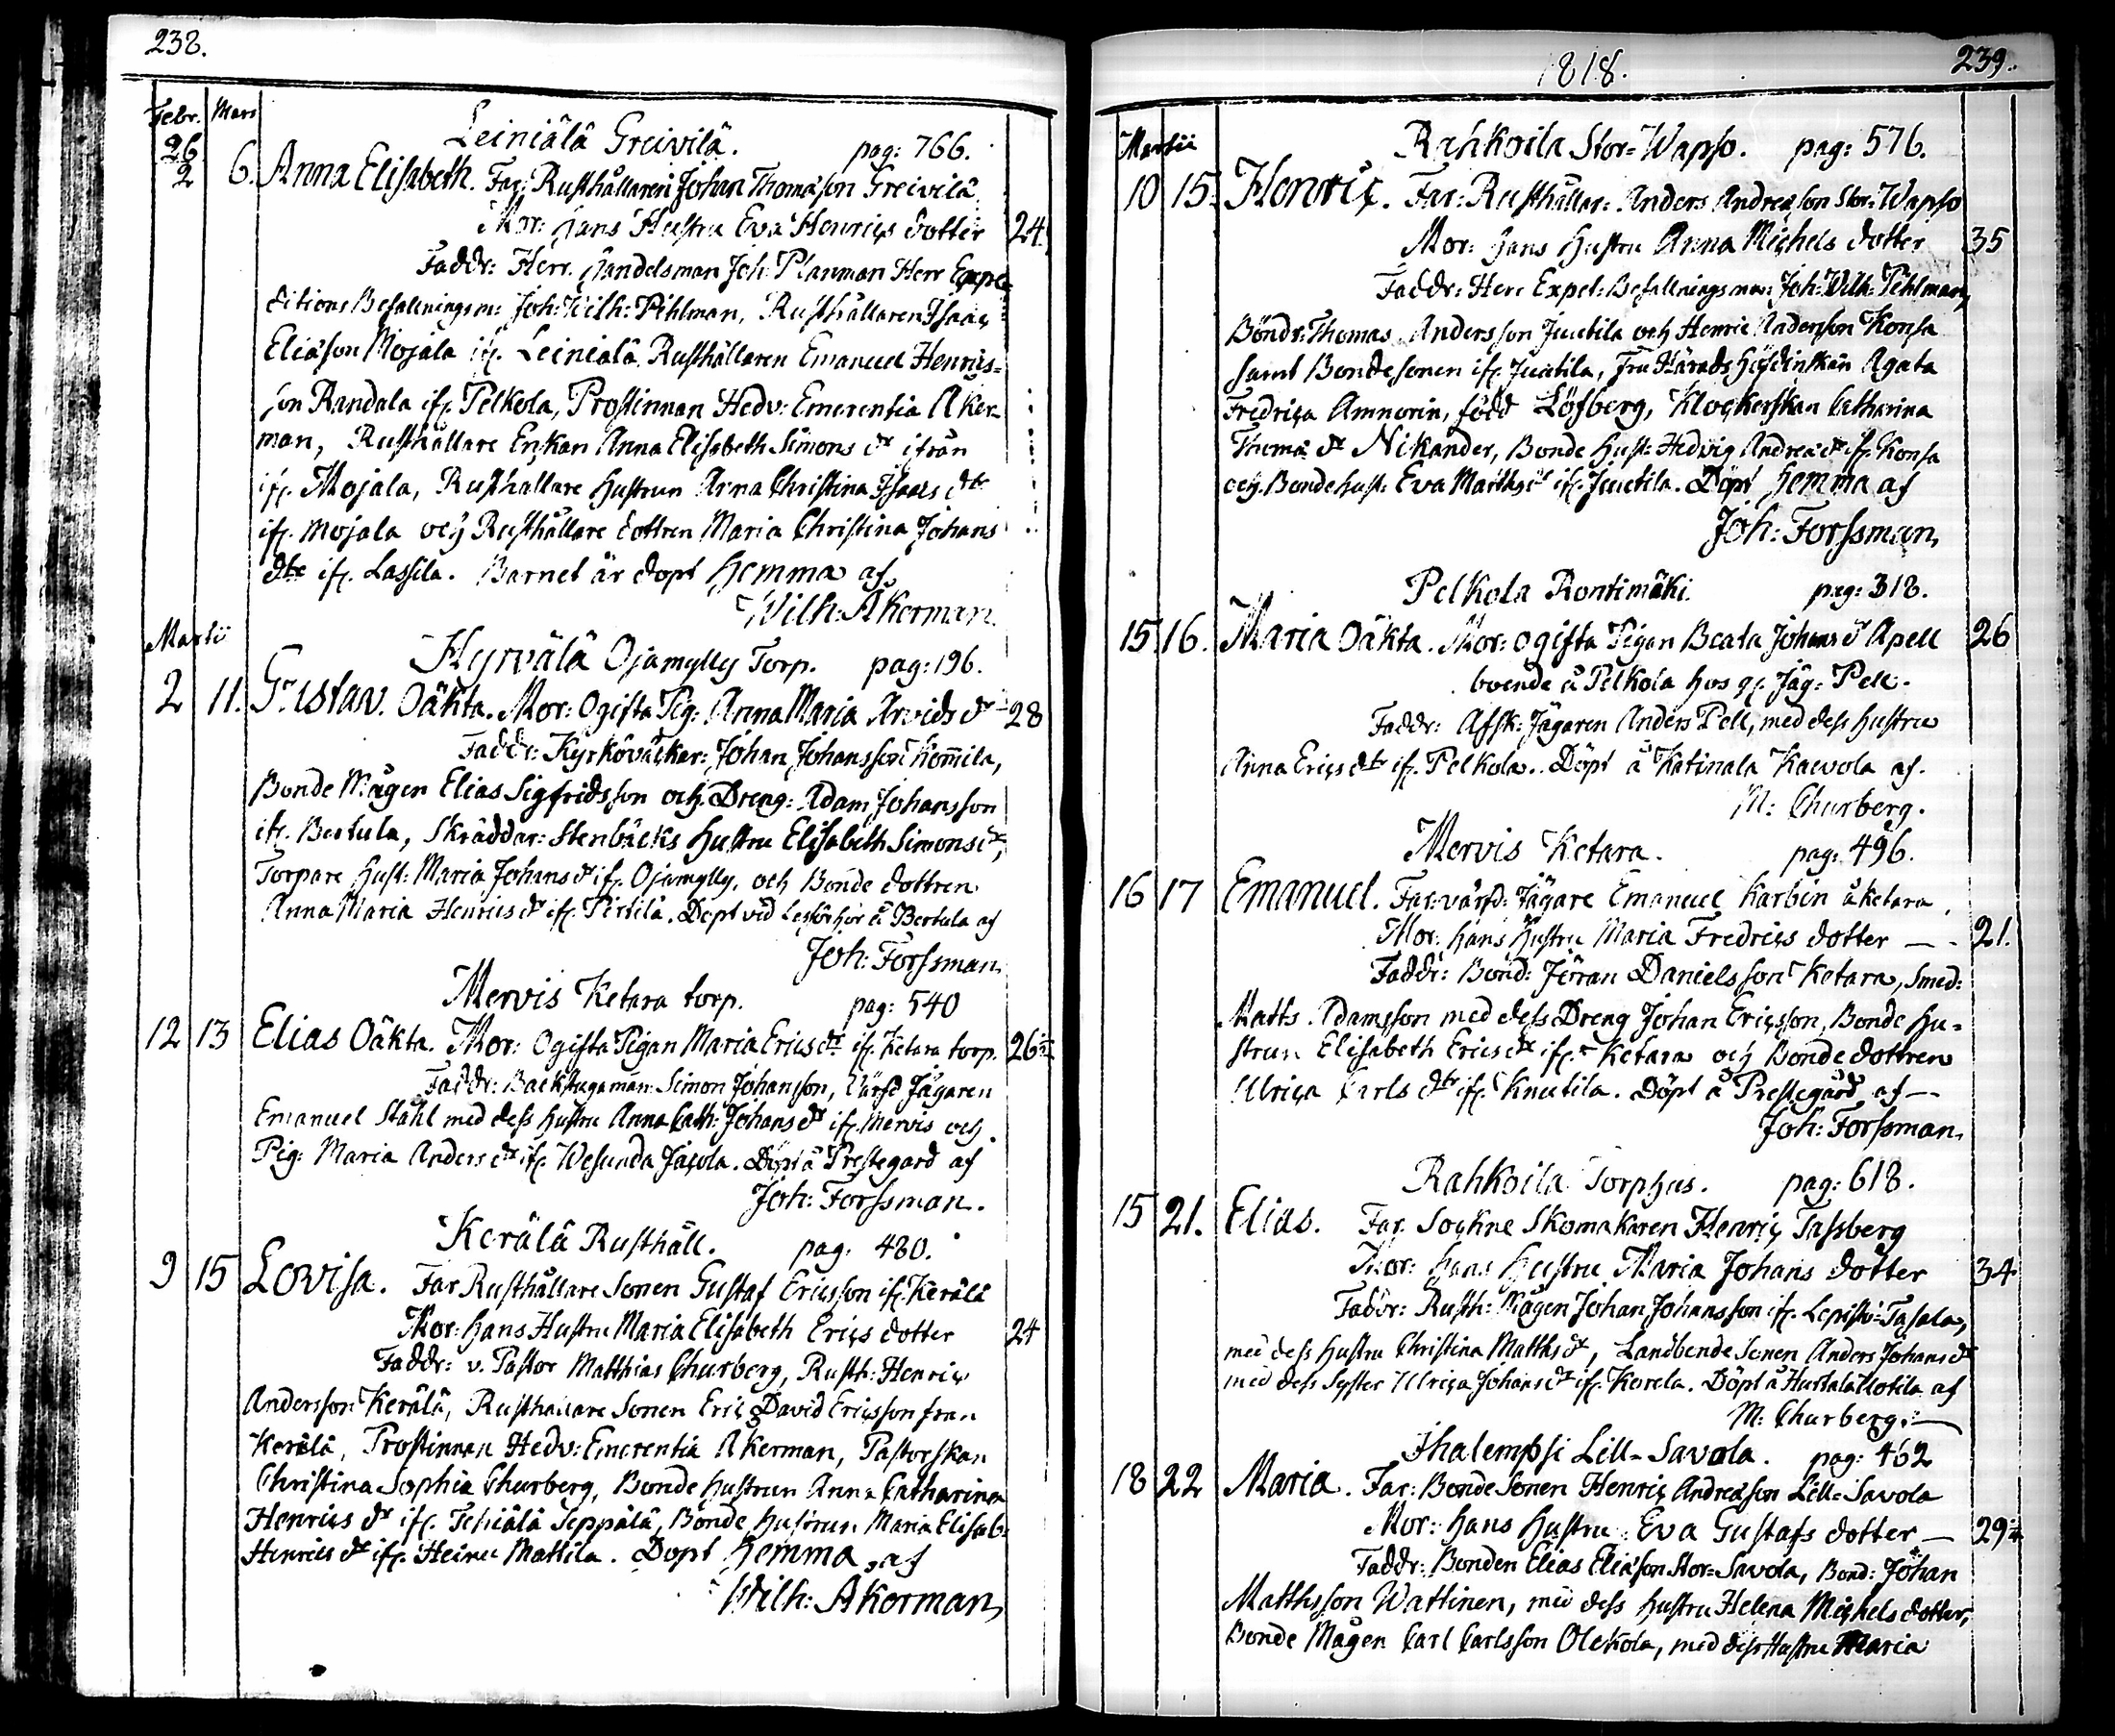 238.
Febr. Mars
Leiniälä Greivilä. pag: 766.
26
2 6. Anna Elisabeth. Far: Rusthållaren Johan Thomasson Greivilä
Mor: hans Hustru Eva Henrics dotter 24
Faddr: Herr Handelsman Joh: Planman Herr Expe-
ditions Befallningsm: Joh: Wilh: Pihlman, Rusthållaren Isaac
Eliasson Mojala if. Leiniälä Rusthållaren Emanuel Henrics-
son Randala if. Pelkola, Prostinnan Hedv: Emerentia Aker-
man, Rusthållare Enkan Anna Elisabeth Simons dr ifrån
if. Mojala, Rusthållare Hustrun Anna Christina Isaacs dtr
if. Mojala och Rusthållare dottren Maria Christina Johans
dtr if. Lassila. Barnet är döpt hemma af
Wilh: Akerman.
Martii
Hyrvälä Ojamylly Torp. pag: 196.
2 11. Gustav. Oäkta. Mor: Ogifta Pig: Anna Maria Arvids dr 28
Faddr: Kyrkoväckar: Johan Johansson Komila,
Bonde Mågen Elias Sigfridsson och Dreng: Adam Johansson
if. Bertula, Skräddar: Stenbäcks Hustru Elisabeth Simons dr,
Torpare Hust: Maria Johans dr if. Ojamylly, och Bonde dottren
Anna Maria Henrics dr if. Pertilä. Döpt vid å Bertula af
Joh: Forssman.
Mervis Ketara torp. pag: 540
12 13 Elias Oäkta. Mor: Ogifta Pigan Maria Erics dr if. Ketara torp. 26
Faddr: Backstugaman Simon Johansson, Värfd Jägaren
Emanuel Stahl med dess hustru Anna Cath: Johans dr if. Mervis och
Pig: Maria Anders dr if. Wesunda Jacola. Döpt å Prestegard af
Joh: Forssman.
Kerälä Rusthåll. pag: 480.
9 15 Lovisa. Far Rusthållare Sonen Gustaf Ericsson if. Kerälä
Mor: hans Hustru Maria Elisabeth Erics dotter 24
Faddr: v. Pastor Matthias Churberg, Rusth: Henric
Andersson Kerälä, Rusthållare Sonen Eric David Ericsson fran
Kerälä, Prostinnan Hedv: Emerentia Akerman, Pastorskan
Christina Sophia Churberg, Bonde Hustrun Anna Catharina
Henrics dr if. Seppälä, Bonde hustrun Maria Elisab:
Henrics dr if. Heinu Mattila. Döpt hemma af
Wilh: Akerman,
1818. 239.
Martii
Rahkoila Stor-Wapso. pag: 576.
10 15. Henric. Far: Rusthållar: Anders Andreasson Stor-Wapso
Mor: hans hustru Anna Michels dotter 35
Faddr: Herr Expet: Befallningsman: Joh: Wilh: Pihlman,
Böndr: Thomas Andersson Juutila och Henric Andersson Konsa
samt Bondesonen if. Juutila, Fru Härads Höfdinskan Agata
Fredrica Amnorin, född Löfberg, Klockerskan Catharina
Thomæ dr Nikander, Bonde hust: Hedvig Andreæ dr if. Konsa
och Bonde hust: Eva Matths dr if. Juutila. Döpt hemma af
Joh: Forssman,
Pelkola Rontimäki. pag: 318.
15 16. Maria Oäkta. Mor: ogifta Pigan Beata Johans dr Apell 26
boende å Pelkola hos gl. Jäg: Pell.
Faddr: Afsk: Jägaren Anders Pell, med dess hustru
Anna Erics dtr if. Pelkola. Döpt å Katinala Kaevola af.
M: Churberg.
Mervis Ketara. pag: 496.
16 17 Emanuel. Far: värfd: Jägare Emanuel Karbin å Ketara.
Mor: hans hustru Maria Fredrics dotter — 21.
Faddr: Bond: Jöran Danielsson Ketara, Smed:
Matts Adamsson med dess Dreng Johan Ericsson, Bonde Hu-
strun Elisabeth Erics dr if. Ketara och Bonde dottren
Ulrica Carls dtr if. Knutila. Döpt å Prestegård af —
Joh: Forssman.
Rahkoila Torphus. pag: 618.
15 21. Elias. Far Sockne Skomakaren Henric Tassberg
Mor: hans hustru Maria Johans dotter 34
Faddr: Rusth: Mågen Johan Johansson if. Lepistö-Tasala,
med dess hustru Christina Matths dr, Landbonde Sonen Anders Johans dr
med dess Syster Ulrica Johans dr if. Korela. Döpt å Hurtala Ilotila af
M: Churberg.
Ihalempsi Lill-Savola. pag: 462
18 22 Maria. Far: Bonde Sonen Henric Andreasson Lill-Savola
Mor: hans hustru Eva Gustafs dotter — 29
Faddr: Bonden Elias Eliasson Stor-Savola, Bond: Johan
Matthsson Wattinen, med dess hustru Helena Michels dotter,
Bonde Mågen Carl Carlsson Olckola, med dess Hustru Maria